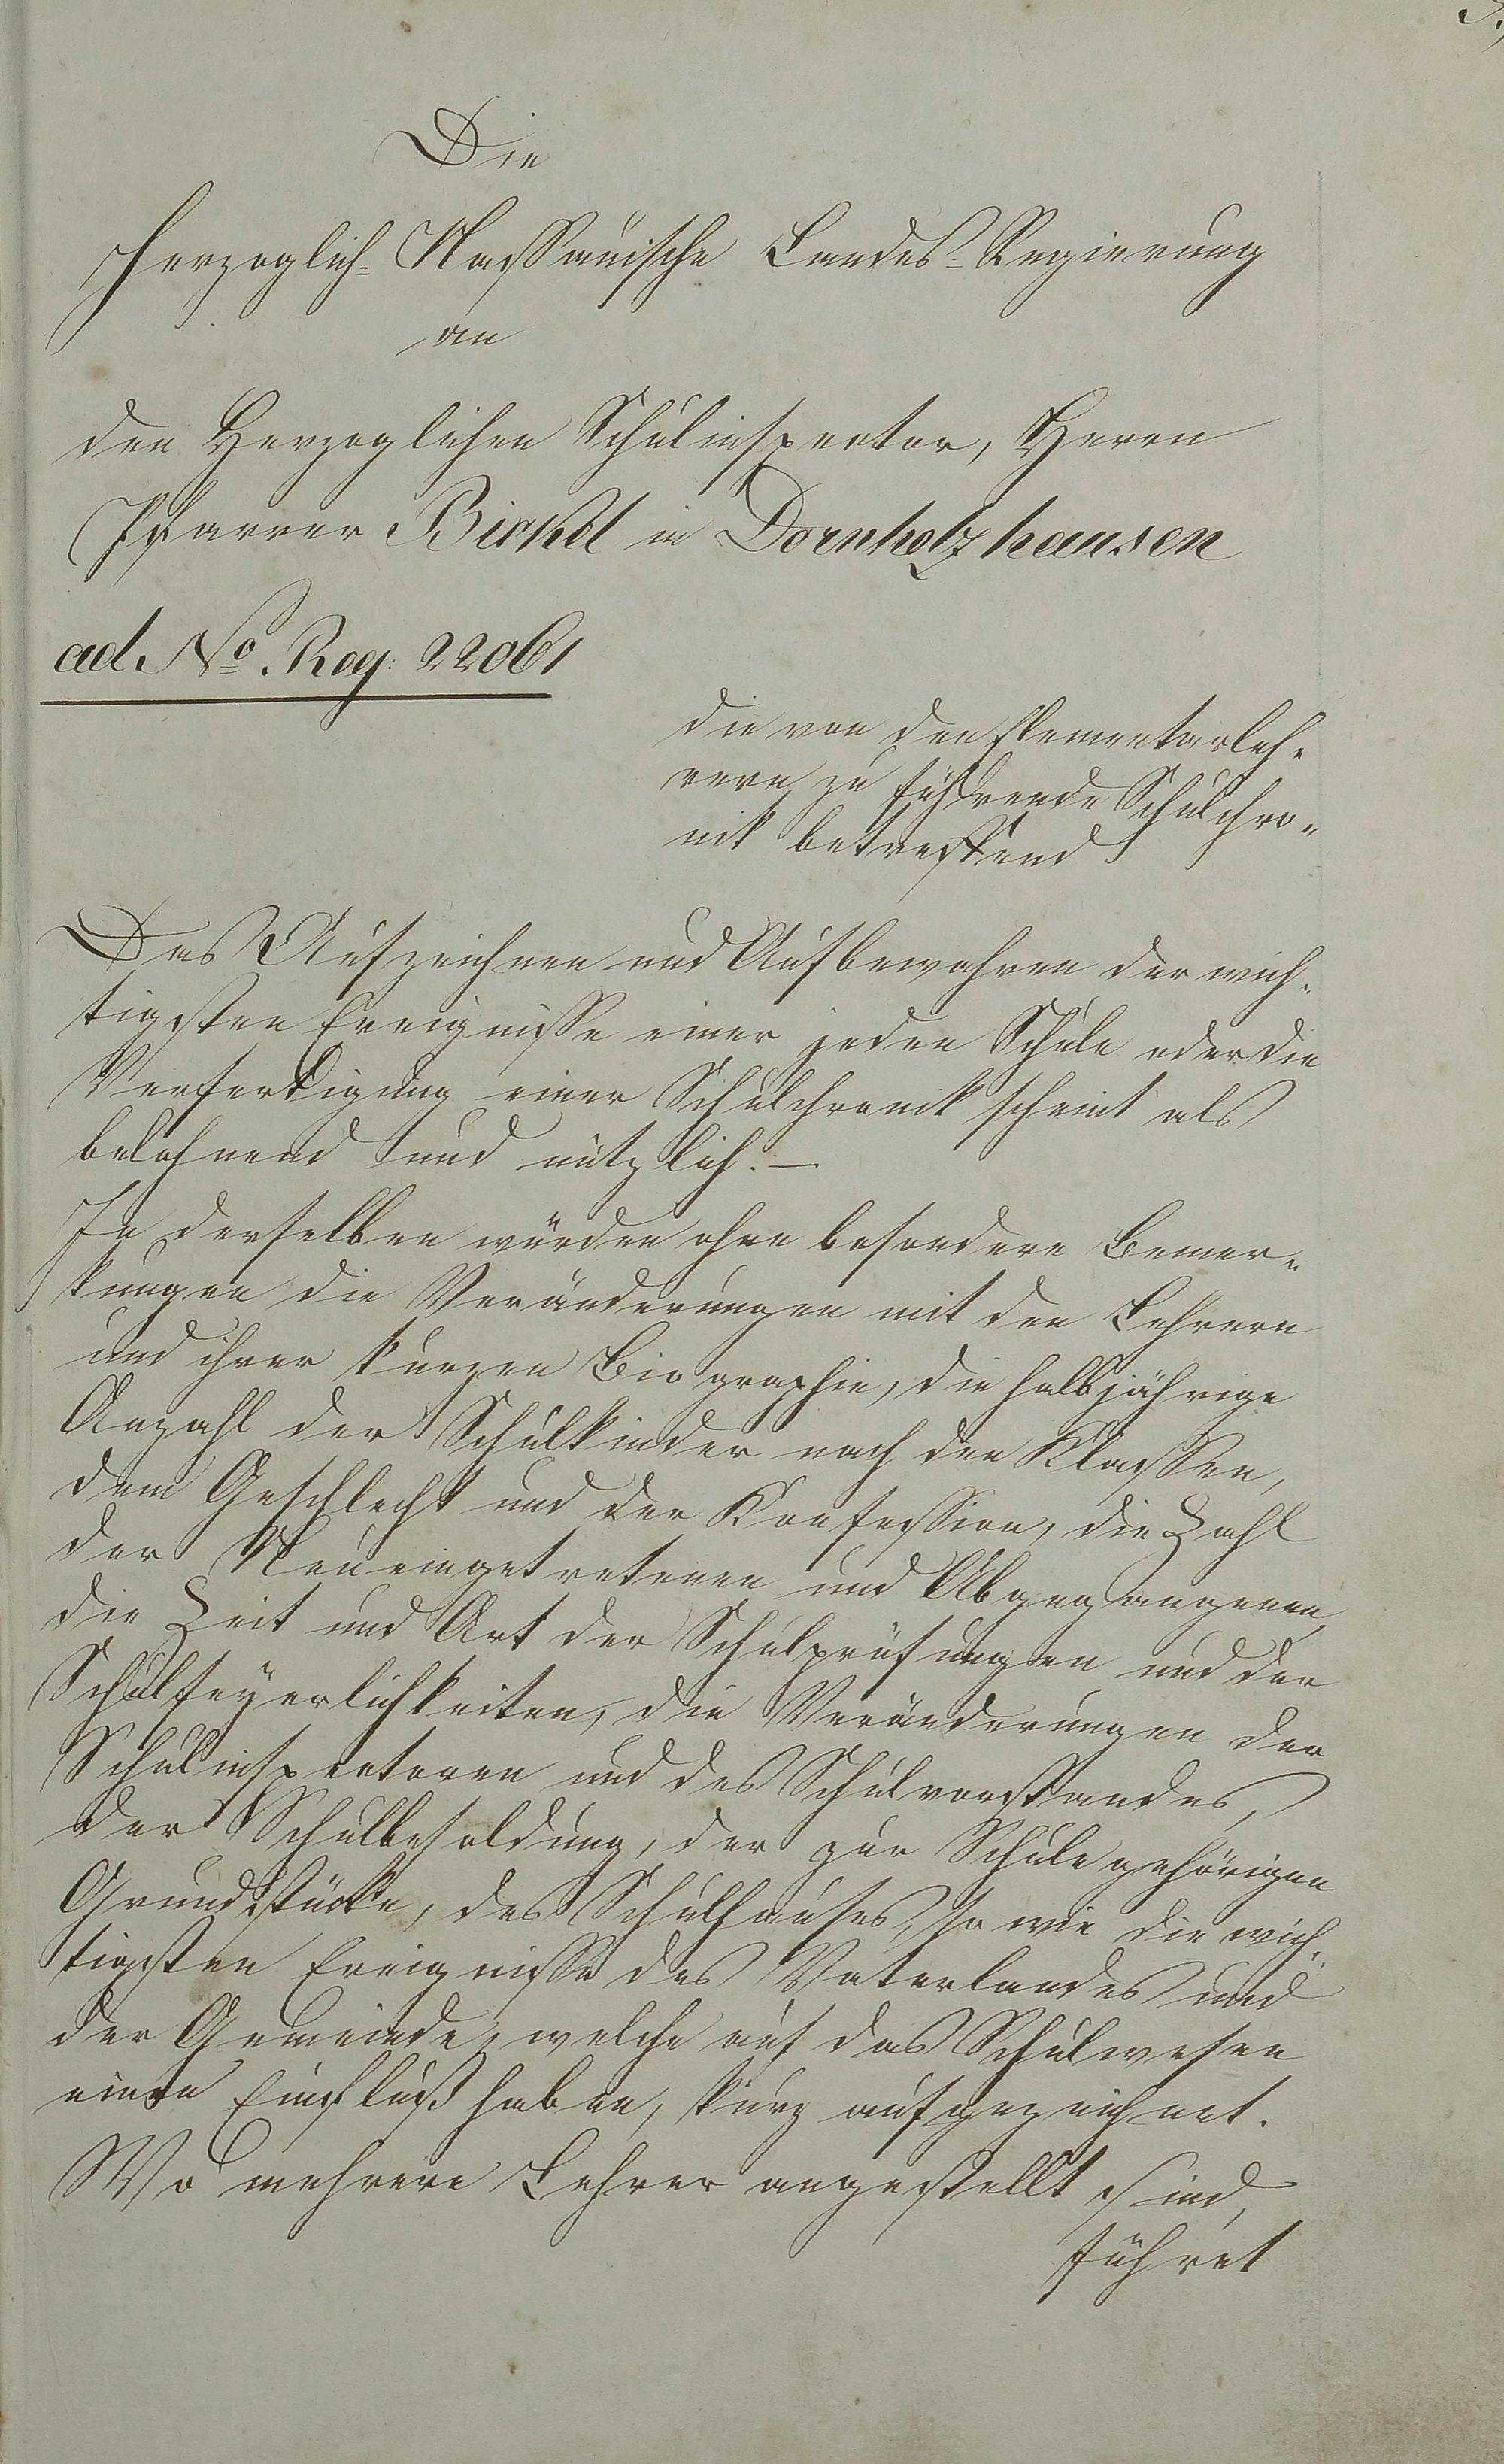 Die
Herzoglich-Nassauische Landes-Regierung
an
den Herzoglichen Schulinspector, Herrn
Pfarrer Birkel in Dornholzhausen
ad No. Reg. 22061
die von den Elementarleh-
rern zu führende Schulchro-
nik betreffend
Das Aufzeichnen und Aufbewahren der wich-
tigsten Ereignisse einer jeden Schule oder die
Verfertigung einer Schulchronik scheint als
belohnend und nützlich. —
In derselben würden ohne besondere Bemer-
kungen die Veränderungen mit den Lehrern
und ihrer kurzen Biographie, die halbjährige
Anzahl der Schulkinder nach den Klassen,
dem Geschlecht und der Konfession, die Zahl
der Neueingetretenen und Abgegangenen,
die Zeit und Art der Schulprüfungen und der
Schulfeyerlichkeiten, die Veränderungen der
Schulinspectoren und des Schulvorstandes,
der Schulbesoldung, der zur Schule gehörigen
Grundstücke, des Schulhauses, so wie die wich-
tigsten Ereignisse des Vaterlandes und
der Gemeinde, welche auf das Schulwesen
einen Einfluß haben, kurz aufgezeichnet.
Wo mehrere Lehrer angestellt sind,
führet